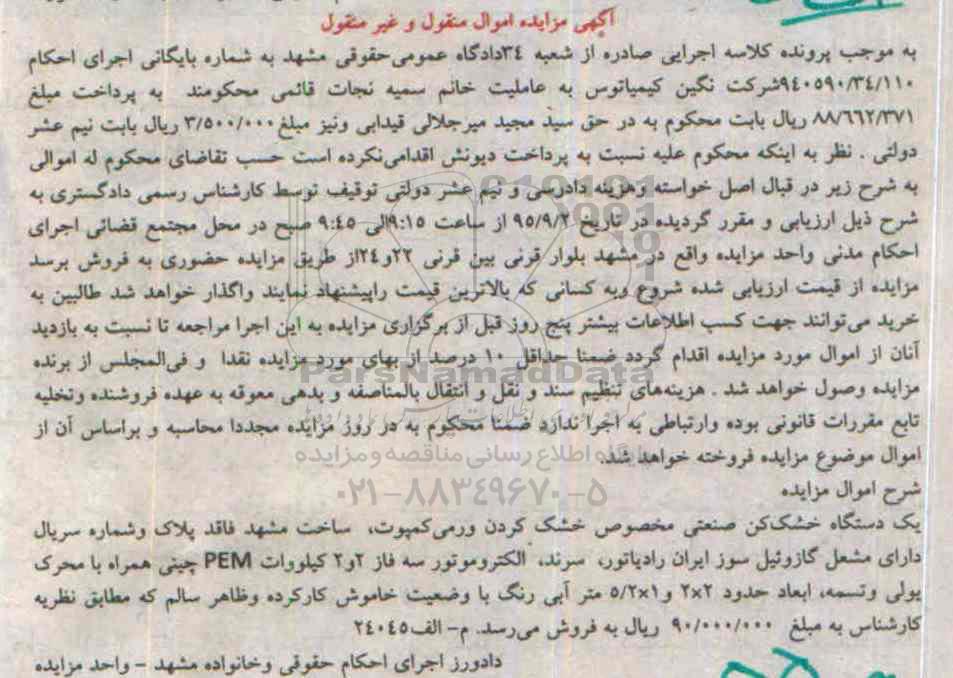 آگهی مزایده اموال منقول و غیر منقول
به موجب پرونده کلاسه اجرایی صادره از شعبه ۳۴دادگاه عمومی‌حقوقی مشهد به شماره بایگانی اجرای احکام
۹۴۰۵۹۰/۳۴/۱۱۰شرکت نگین کیمیاتوس به عاملیت خانم سمیه نجات قائمی محکومند به پرداخت مبلغ
۸۸/۶۶۲/۳۷۱ ریال بابت محکوم به در حق سید مجید میرجلالی قیدابی ونیز مبلغ ۳/۵۰۰/۰۰۰ ریال بابت نیم عشر
دولتی . نظر به اینکه محکوم علیه نسبت به پرداخت دیونش اقدامی‌نکرده است حسب تقاضای محکوم له اموالی
به شرح زیر در قبال اصل خواسته وهزینه دادرسی و نیم عشر دولتی توقیف توسط کارشناس رسمی دادگستری به
شرح ذیل ارزیابی و مقرر گردیده در تاریخ ۹۵/۹/۲ از ساعت ۹:۱۵الی ۹:۴۵ صبح در محل مجتمع قضائی اجرای
احکام مدنی واحد مزایده واقع در مشهد بلوار قرنی بین قرنی ۲۲و۲۴از طریق مزایده حضوری به فروش برسد
مزایده از قیمت ارزیابی شده شروع وبه کسانی که بالاترین قیمت راپیشنهاد نمایند واگذار خواهد شد طالبین به
خرید می‌توانند جهت کسب اطلاعات بیشتر پنج روز قبل از برگزاری مزایده به این اجرا مراجعه تا نسبت به بازدید
آنان از اموال مورد مزایده اقدام گردد ضمنا حداقل ۱۰ درصد از بهای مورد مزایده نقدا و فی‌المجلس از برنده
ParsNamadData
مزایده وصول خواهد شد . هزینه‌های تنظیم سند و نقل و انتقال بالمناصفه و بدهی معوقه به عهده فروشنده وتخلیه
تابع مقررات قانونی بوده وارتباطی به اجرا ندارد ضمنا محکوم به در روز مزایده مجددا محاسبه و براساس آن از
اموال موضوع مزایده فروخته خواهد شد.
پایگاه اطلاع رسانی مناقصه و مزایده
۰۲۱-۸۸۳۴۹۶۷۰-۵
شرح اموال مزایده
یک دستگاه خشک‌کن صنعتی مخصوص خشک کردن ورمی‌کمپوت، ساخت مشهد فاقد پلاک وشماره سریال
دارای مشعل گازوئیل سوز ایران رادیاتور، سرند، الکتروموتور سه فاز ۲و۲ کیلووات PEM چینی همراه با محرک
پولی وتسمه، ابعاد حدود ۲×۲ و۱×۵/۲ متر آبی رنگ با وضعیت خاموش کارکرده وظاهر سالم که مطابق نظریه
کارشناس به مبلغ ۹۰/۰۰۰/۰۰۰ ریال به فروش می‌رسد. م- الف۲۴۰۴۵
دادورز اجرای احکام حقوقی وخانواده مشهد - واحد مزایده